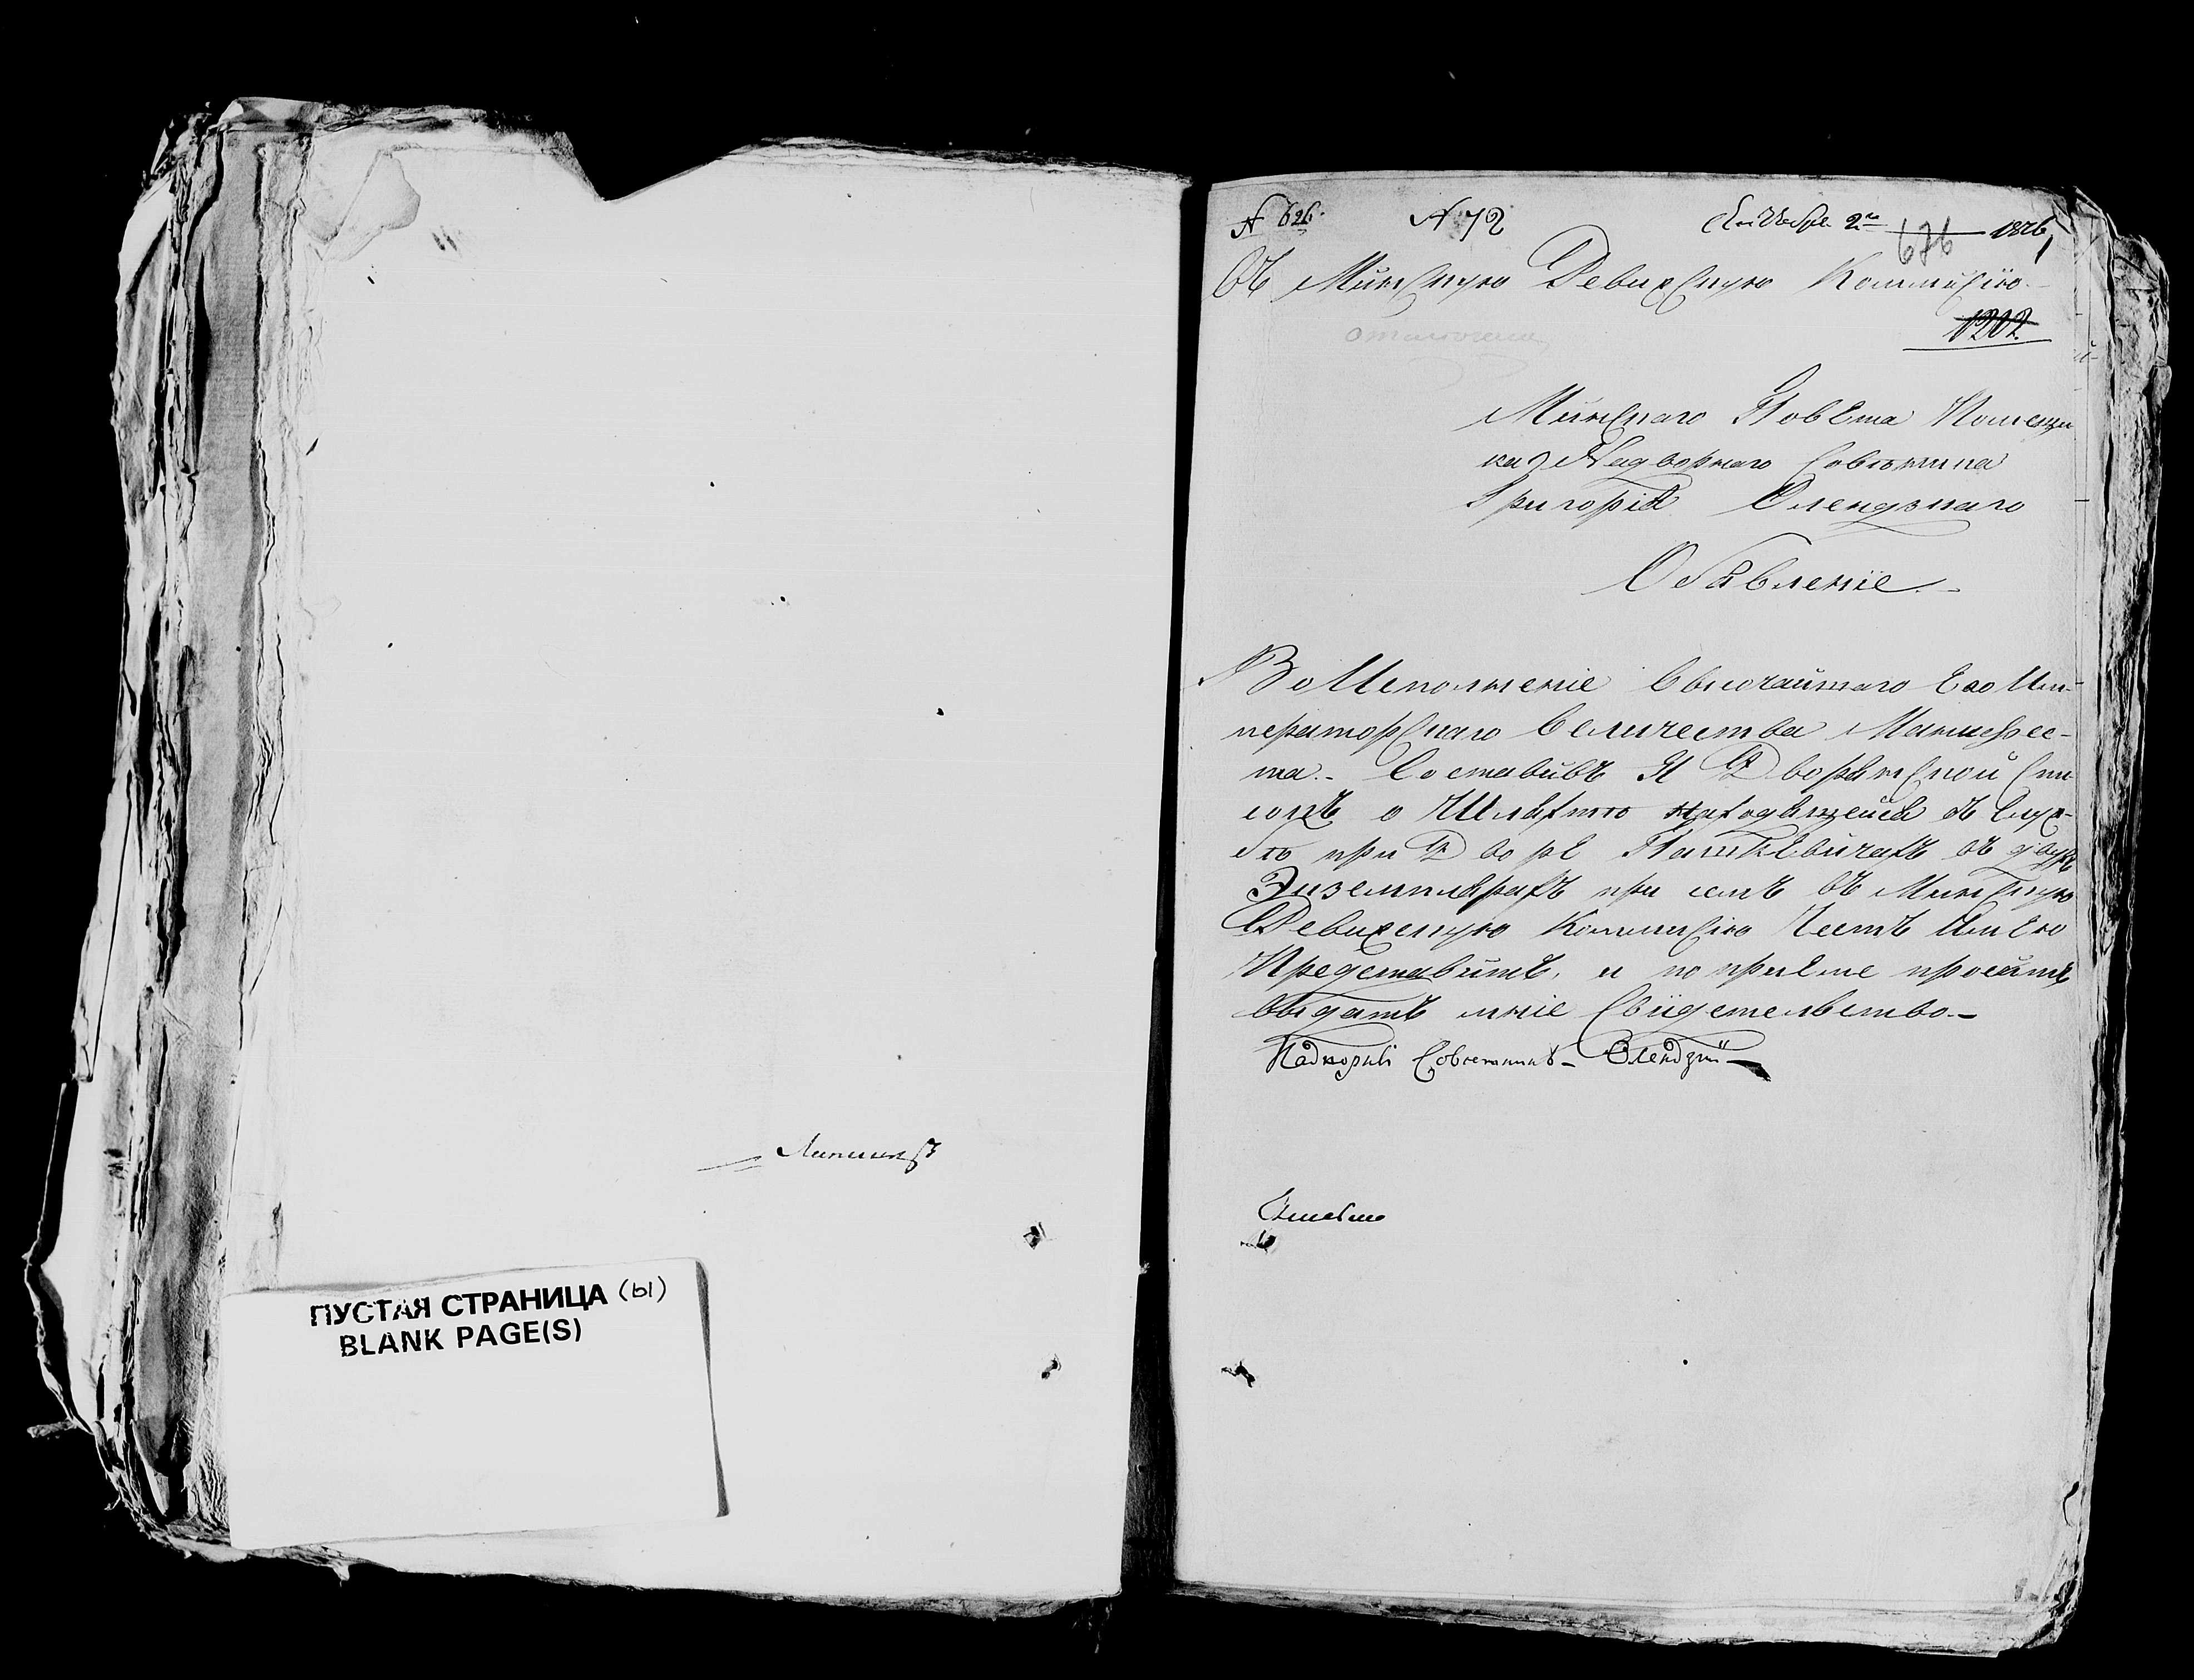 Липинскъ
ПУСТАЯ СТРАНИЦА (Ы)
BLANK PAGE(S)
N 626. N 72 2го 1826
676
Въ Минскую Ревизскую Коммисію
1202
Минскаго Повета Помещи
ка Надворнаго Советника
Григорія Олендзкаго
Обявленіе
Во Исполненіе Высочайшаго Его Им-
ператорскаго Величества Манифес-
та. Составивъ Я Дворянской Спи
сокъ о Шляхте находящейся въ Служ-
бе при Дворе Пашкевичахъ въ двухъ
Экземплярахъ при семъ въ Минскую
Ревизскую Коммисію Честь Имею
Представить, и по приеме просить
выдать мне Свидетельство.
Надворні Советникъ Олендзкій